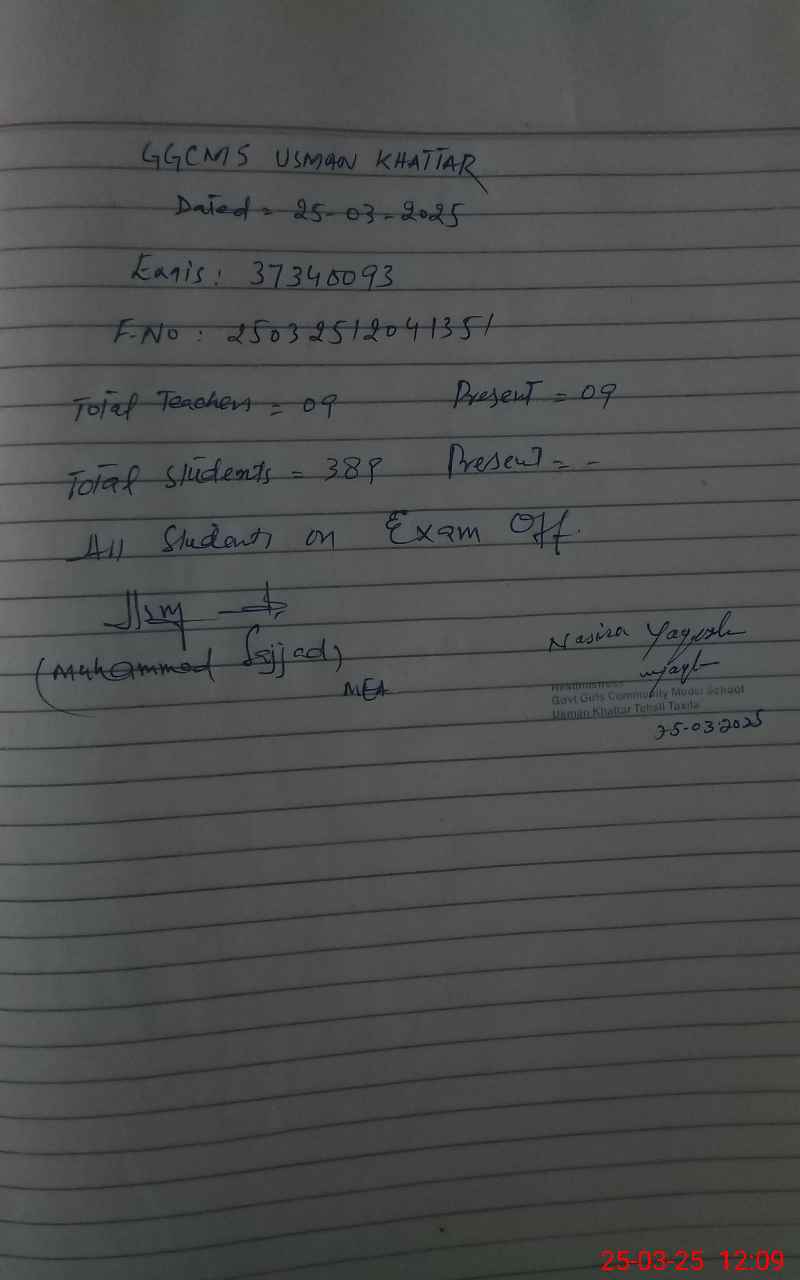 GGCMS USMAN KHATTAR
Dated = 25-03-2025
Emis: 37340093
F.No: 25032512041351
Total Teachers = 09 Present = 09
Total Students = 389 Present = -
All Students on Exam Off.
(Muhammad Sajjad)
MEA
Nasira
Headmistress
Govt Girls Community Model School
Usman Khattar Tehsil Taxila
25-03-2025
25-03-25 12:09